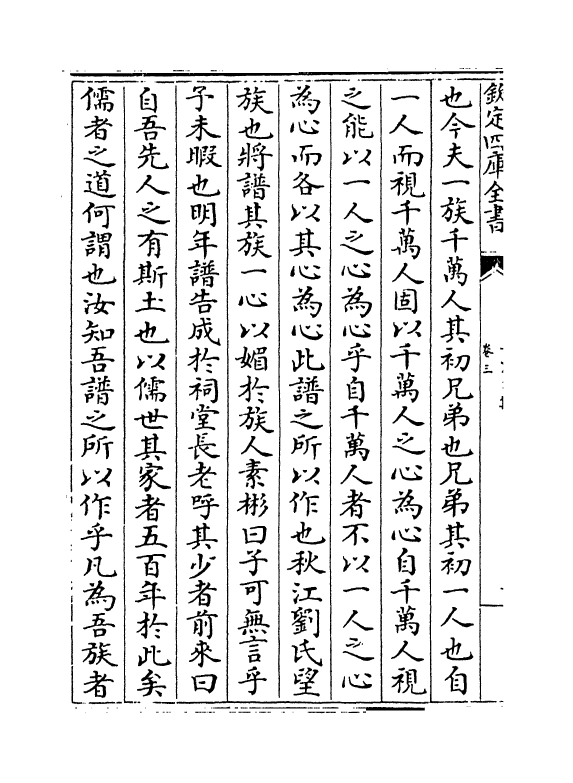 欽定四庫全書
卷三
也今夫一族千萬人其初兄弟也兄弟其初一人也自
一人而視千萬人固以千萬人之心為心自千萬人視
之能以一人之心為心乎自千萬人者不以一人之心
為心而各以其心為心此譜之所以作也秋江劉氏望
族也將譜其族一心以媚於族人素彬曰子可無言乎
予未暇也明年譜告成於祠堂長老呼其少者前來曰
自吾先人之有斯土也以儒世其家者五百年於此矣
儒者之道何謂也汝知吾譜之所以作乎凡為吾族者